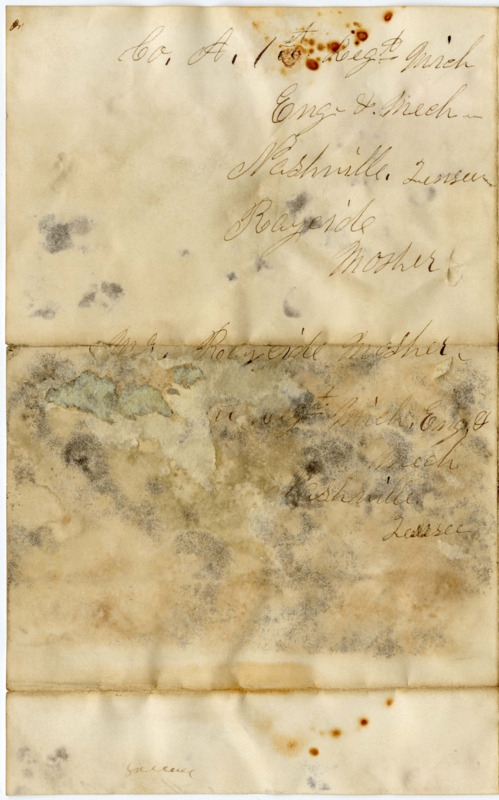 Co. A. 1st Regt Mich
Eng. & Mech
Nashville. Tensee
Rayeide
Mosher
Mr. Rayeide Mosher
Regt Mich. Eng &
Mech
Nashville
Tensee